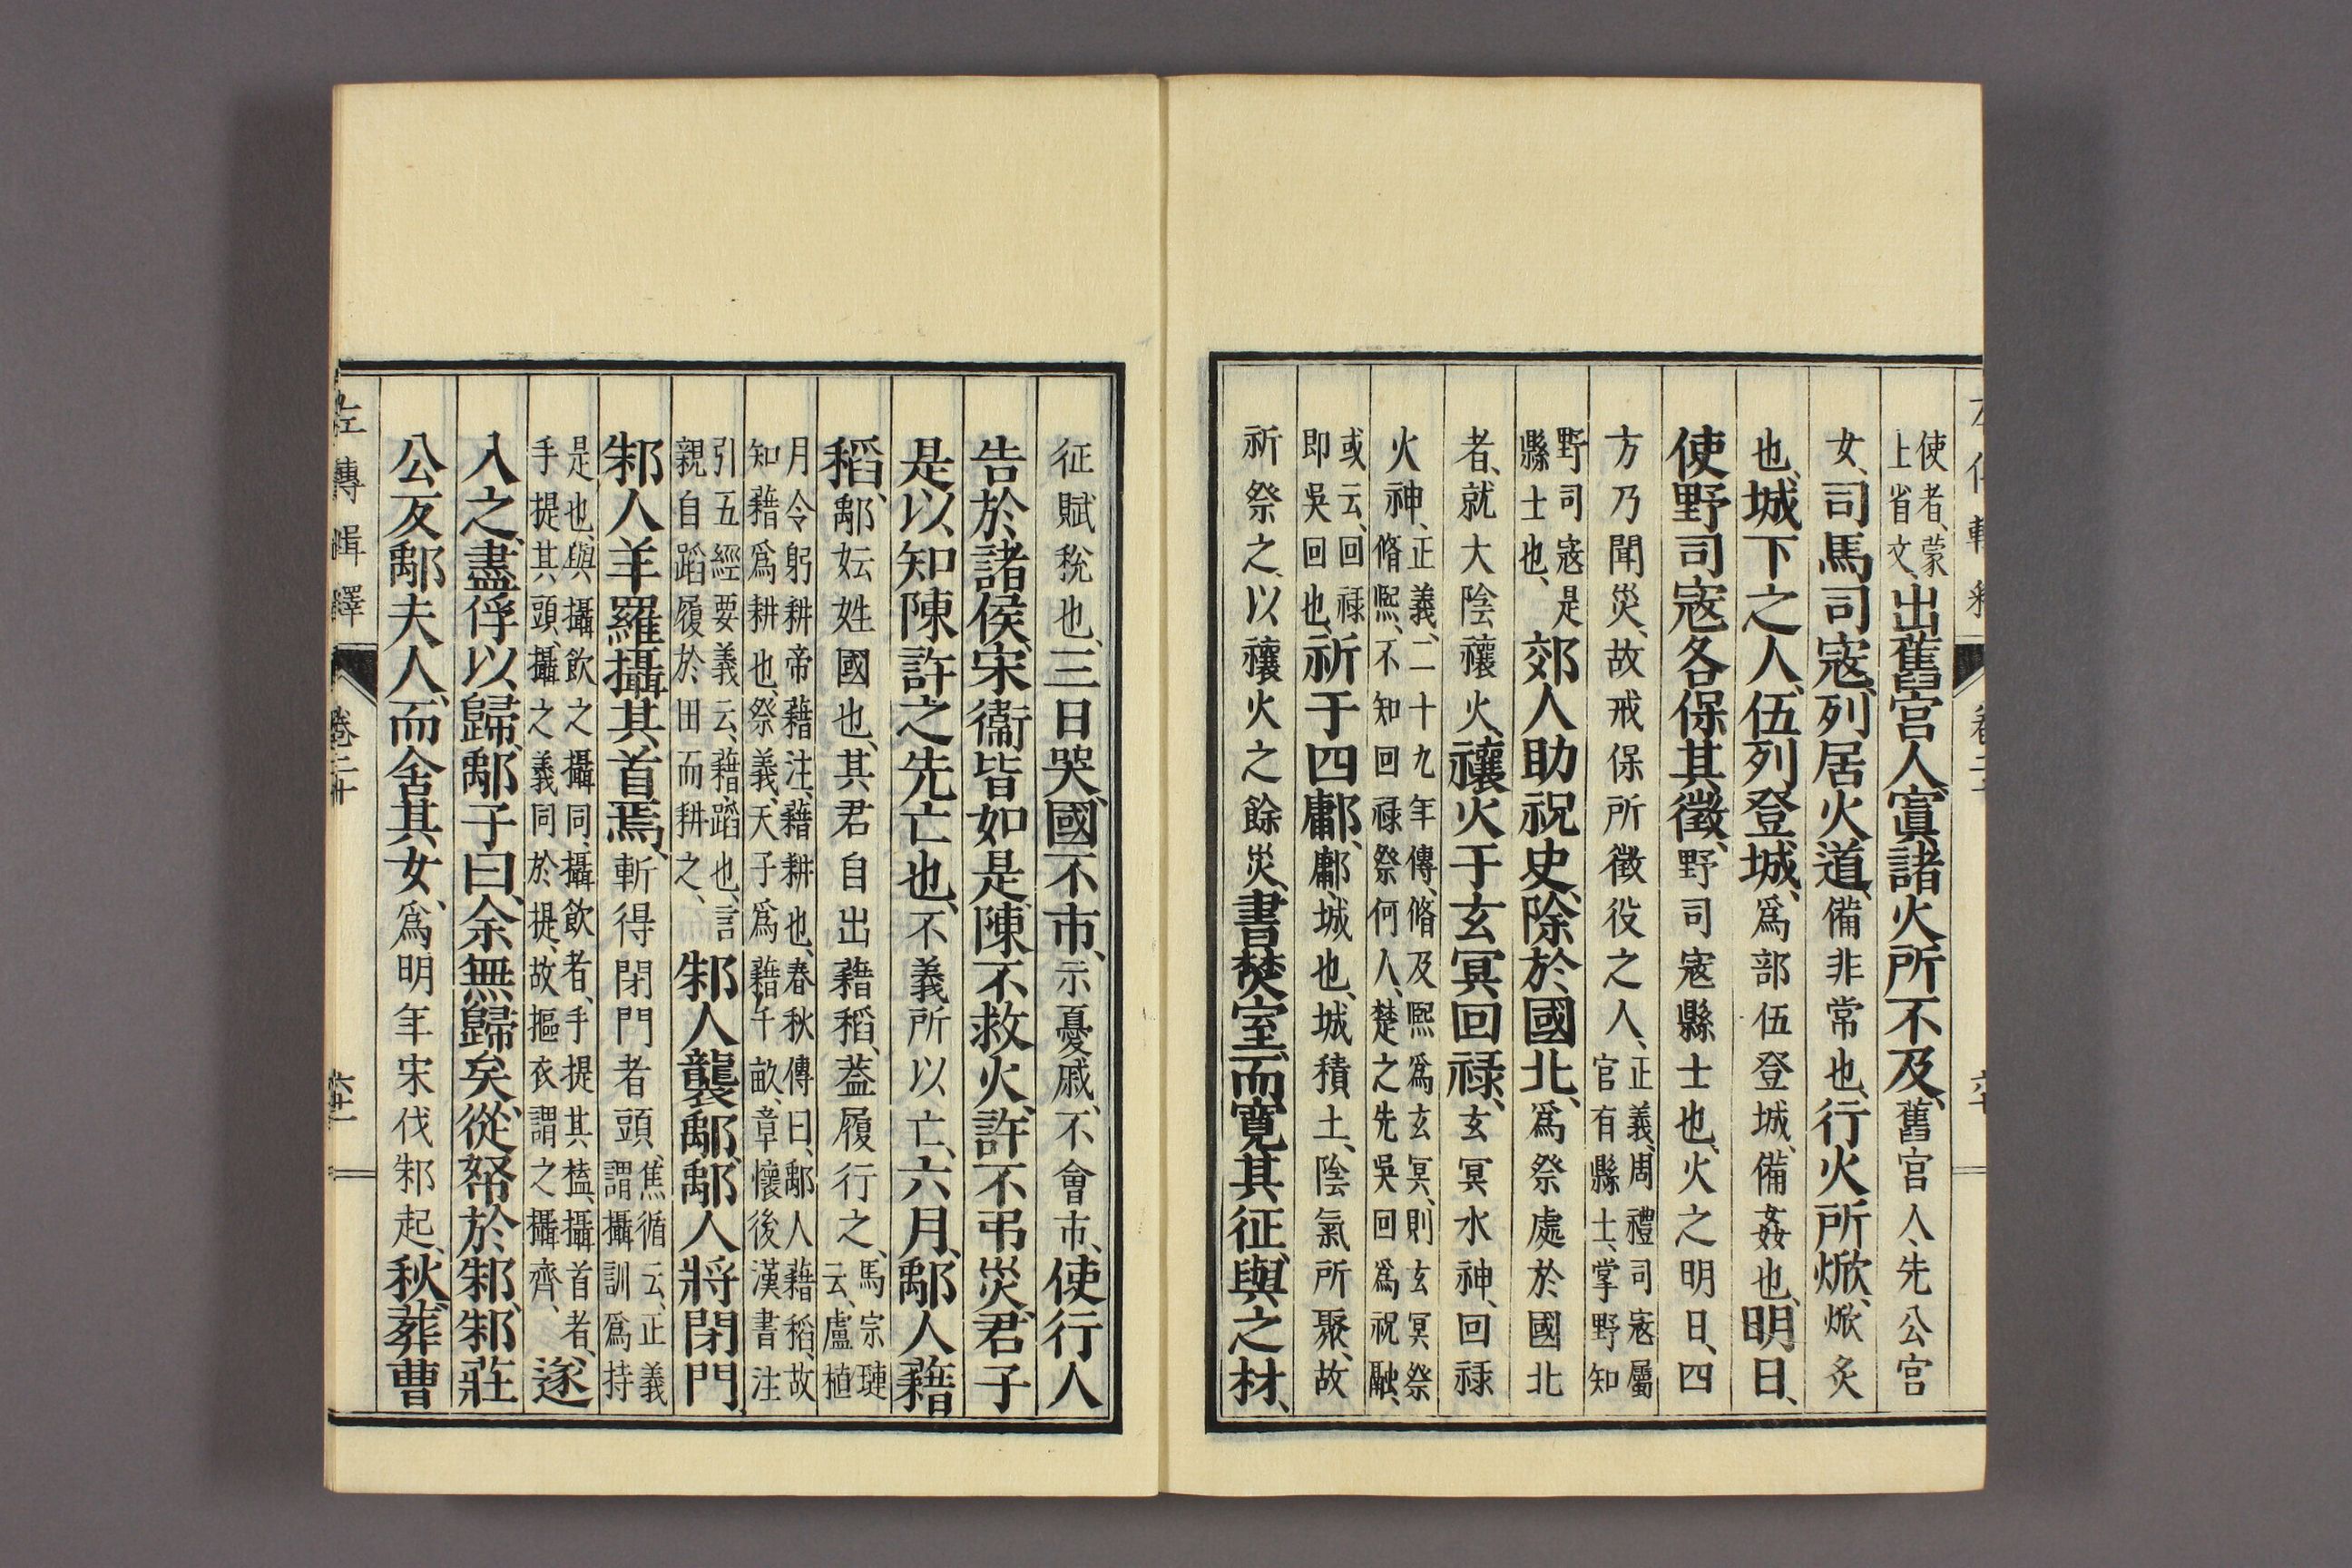 使者、蒙上省文、出舊宮人、寘諸火所不及、舊宮人、先公宮
女、司馬司寇、列居火道、備非常也、行火所焮、焮炙
也、城下之人、伍列登城、爲部伍登城、備姦也、明日、
使野司寇各保其徵、野司寇縣士也、火之明日、四
方乃聞災、故戒保所徵役之人、正義、周禮司寇屬官有縣士、掌野知
野司寇是縣士也、郊人助祝史、除於國北、爲祭處於國北
者、就大陰禳火、禳火于玄冥回祿、玄冥水神、回祿
火神、正義、二十九年傳、脩及熙爲玄冥、則玄冥祭脩熙、不知回祿祭何人、楚之先吳回爲祝融、
或云、回祿即吳回也、祈于四鄘、鄘、城也、城積土、陰氣所聚、故
祈祭之、以禳火之餘災、書焚室、而寬其征、與之材、
征賦稅也、三日哭、國不市、示憂戚、不會市、使行人
告於諸侯、宋衞皆如是、陳不救火、許不弔災、君子
是以知陳許之先亡也、不義所以亡、六月、鄅人藉
稻、鄅妘姓國也、其君自出藉稻、葢履行之、馬宗璉云、盧植
月令躬耕帝藉注、藉耕也、春秋傳曰、鄅人藉稻、故知藉爲耕也、祭義、天子爲藉千畝、章懷後漢書注
引五經要義云、藉、蹈也、言親自蹈履於田而耕之、邾人襲鄅、鄅人將閉門、
邾人羊羅攝其首焉、斬得閉門者頭、焦循云、正義謂攝訓爲持
是也、與攝飲之攝同、攝飲者、手提其榼、攝首者、手提其頭、攝之義同於提、故摳衣謂之攝齊、遂
入之、盡俘以歸、鄅子曰、余無歸矣、從帑於邾、邾莊
公反鄅夫人、而舍其女、爲明年宋伐邾起、秋、葬曹
左傳輯釋
卷二十